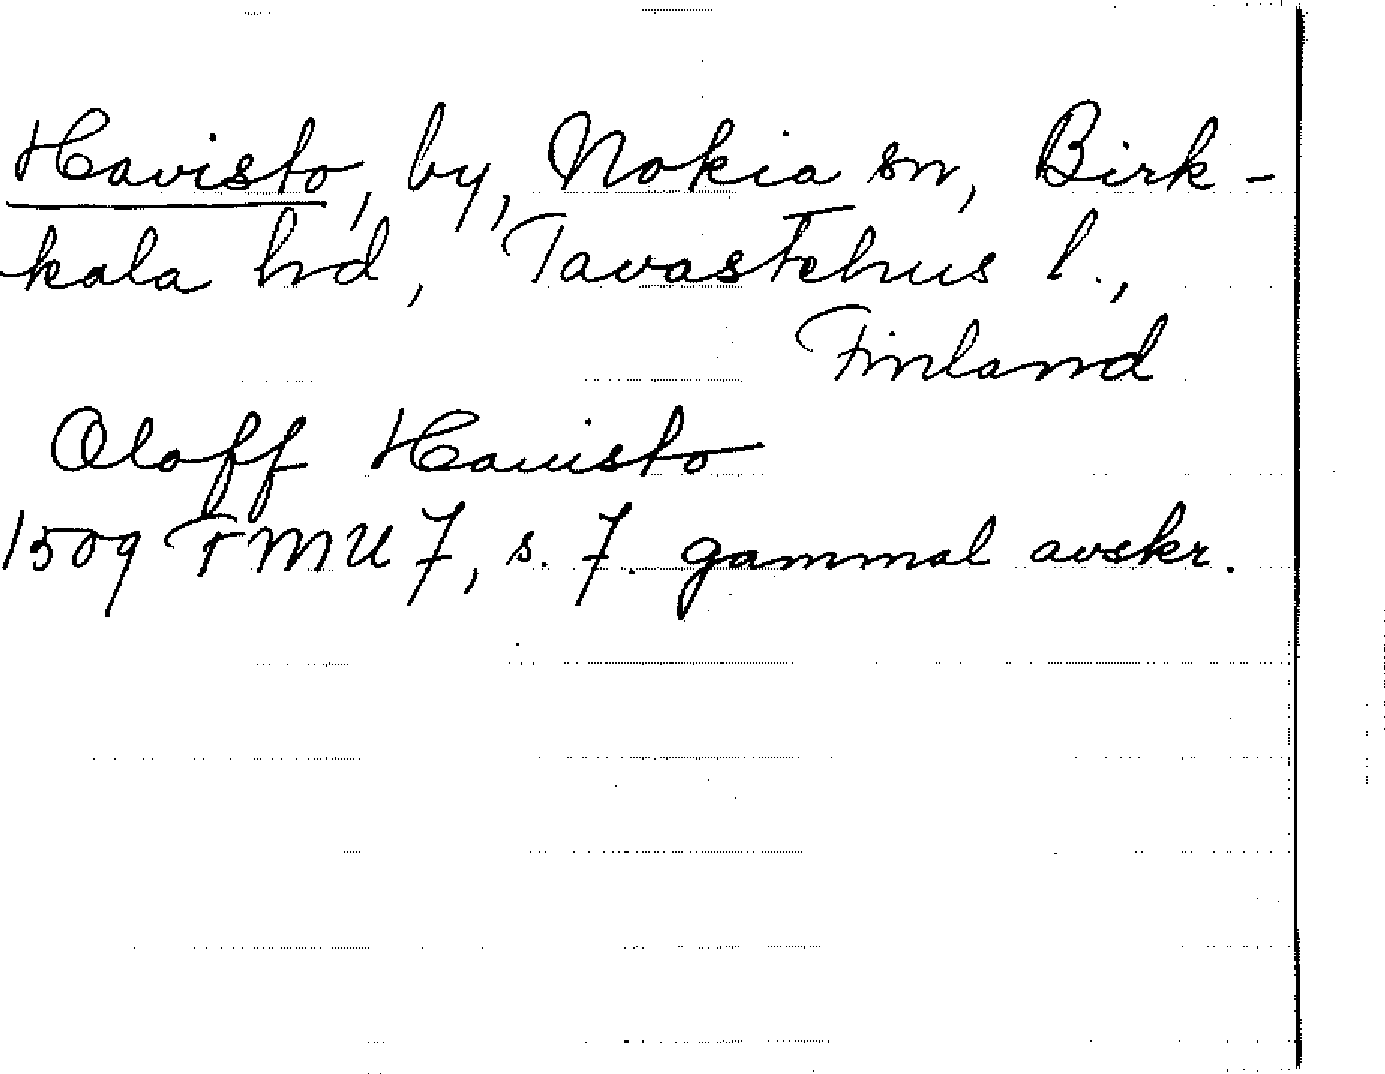 Havisto, by, Nokia sn, Birk-
kala hd, Tavastehus l.,
Finland
Oloff Hauisto
1509 FMU 7, s. 7. gammal avskr.